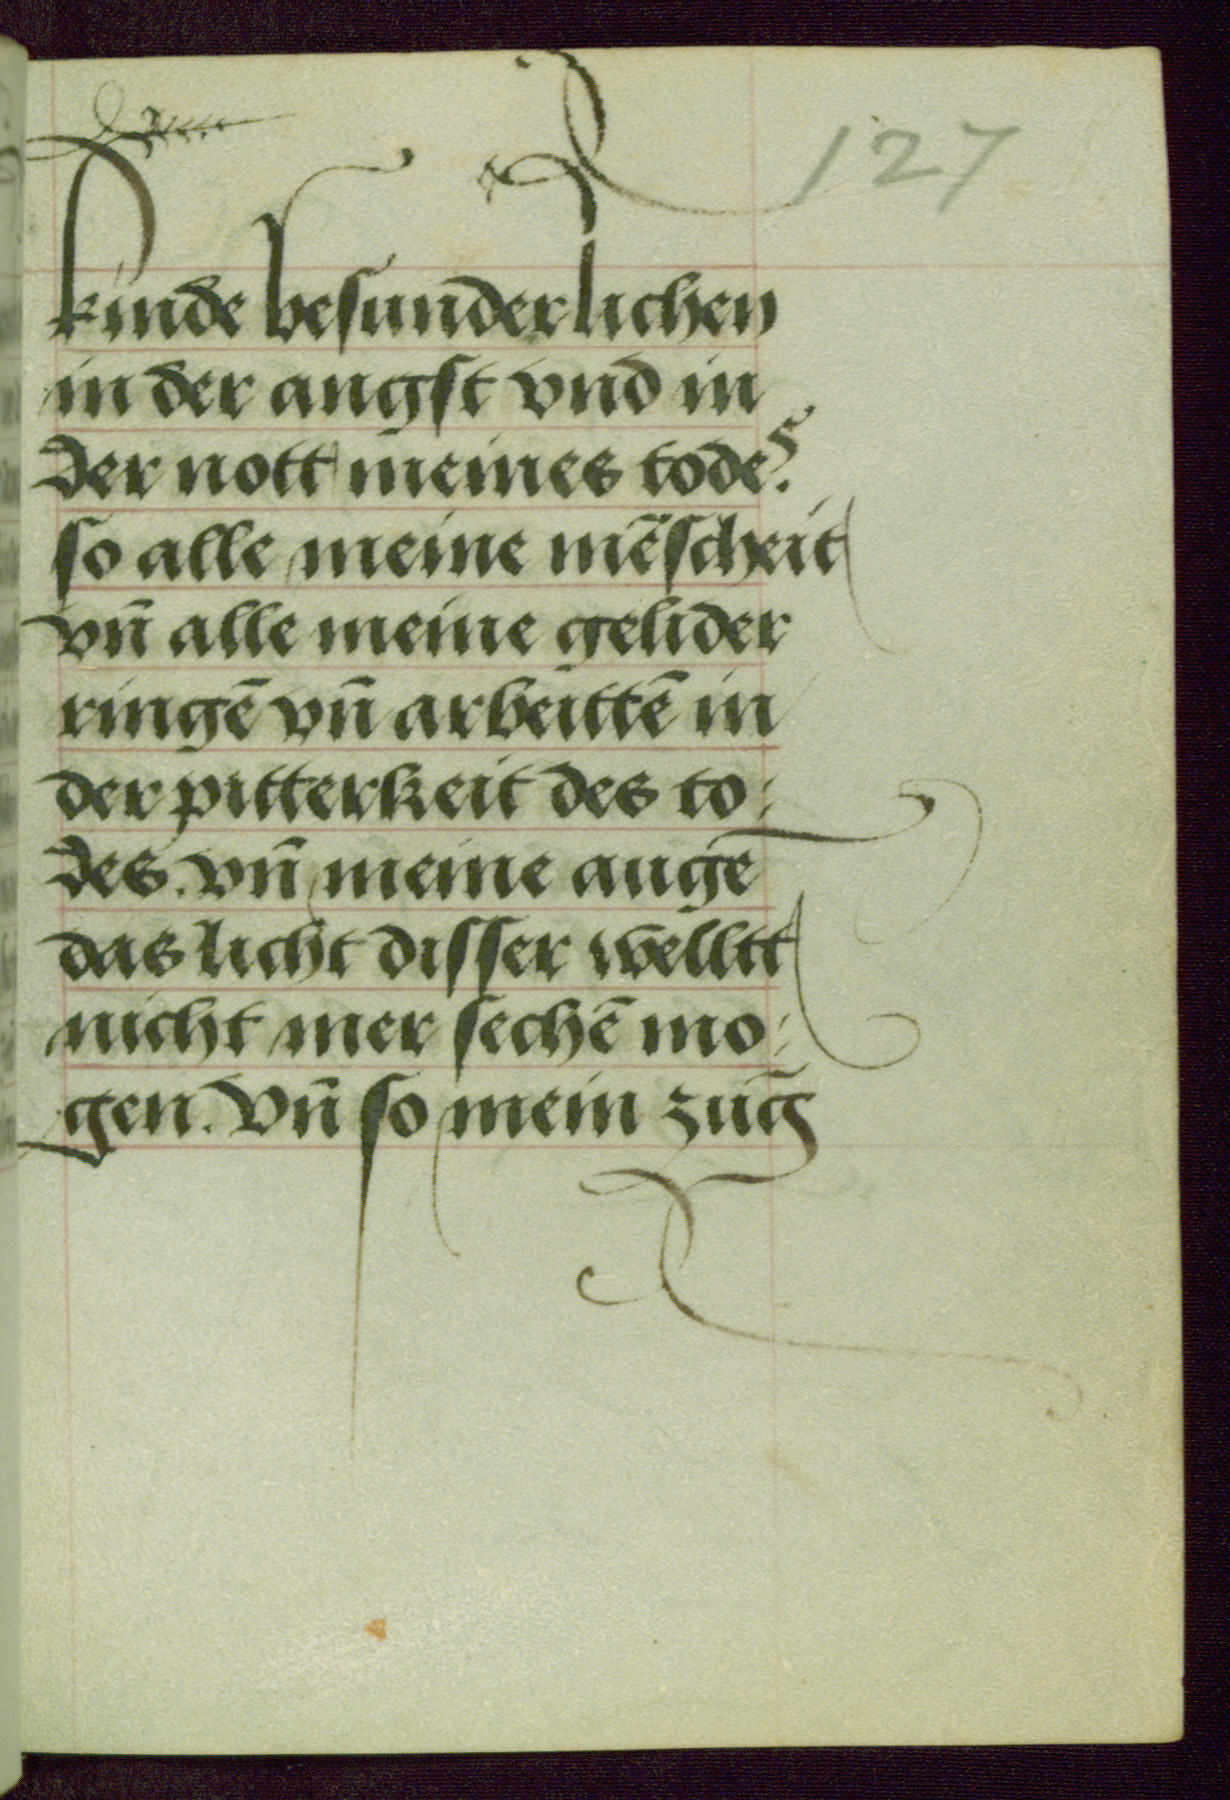 127
kinde besunderlichen
in der angst vnd in
der nott meines todes.
so alle meine mēscheit
vn̄ alle meine gelider
ringē vn̄ arbeittē in
der pitterkeit des to⸗
des. vn̄ meine augē
das licht disser welltt
nicht mer sechē mo⸗
gen. Vn̄ so mein zūg